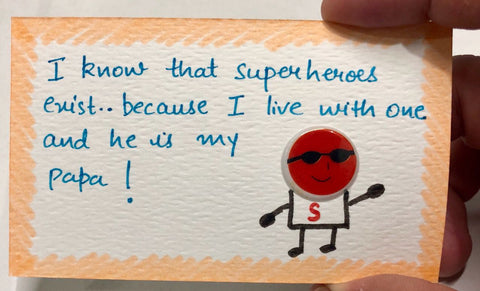 I know that superheroes
exist.. because I live with one
and he is my
papa !
S